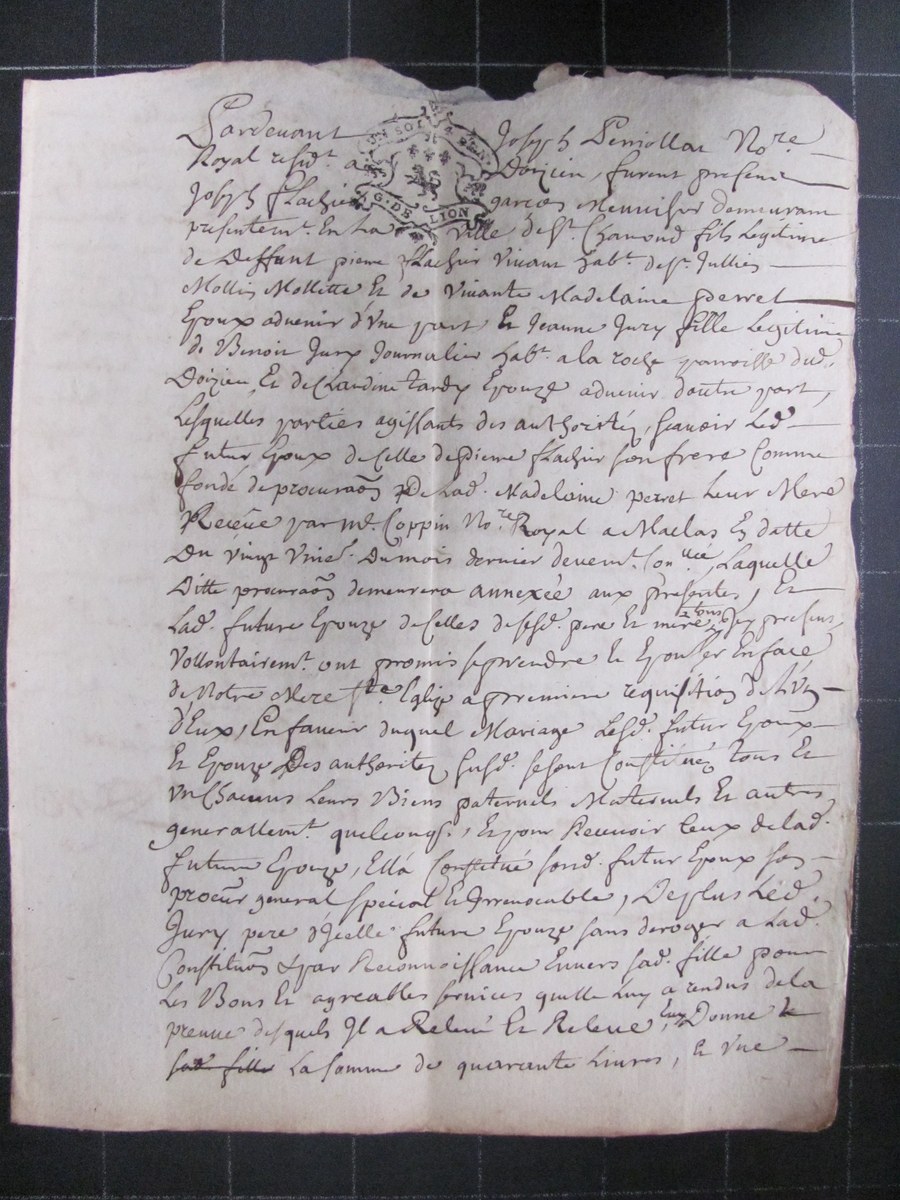 Pardevant Joseph Peniollat No.re
Royal resid.t a Doizieu, furent presents
Joseph flachier garçon Menuisier demeurant
presentem.t En La ville de S.t Chamond fils Legitime
de Deffunt pierre flachier Vivant hab.t de S.t Jullien
Mollin Mollette Et de Vivante Madelaine perret
Epoux advenir d'Une part Et Jeanne Jury fille Legitime
de Benoit Jury Journalier hab.t a la roche parroisse dud.
Doizieu, Et de Claudine tardy Epouze advenir d'autre part,
Lesquelles parties agissants des authoritéz, sçavoir Led.
futur Epoux de Celle de Pierre flachier son frere Comme
fondé de procuraõn De Lad. Madelaine perret Leur Mere
Receüe par m.e Coppin No.re Royal a Maclas En datte
Du vingt Du mois dernier deuem.t Con.llée, Laquelle
Ditte procuraõn demeurera annexée aux presentes, Et
Lad. future Epouze de Celles de sesd. pere Et mere tous Icy presens,
Vollontairem.t ont promis se prendre Et Epouser En face
de Notre Mere S.te Eglize a premiere requisition de L'Un
d'Eux, En faveur duquel Mariage Lesd. futur Epoux
Et Epouze Des authoritéz susd. se sont Constitués tous Et
Un Chacuns Leurs Biens paternels Maternels Et autres
generallem.t quelconq.s, Et pour Recevoir Ceux de Lad.
future Epouze, Ell'a Constitué sond. futur Epoux son
procur general special Et Irrevocable, De plus Led.
Jury pere d'Icelle future Epouze sans deroger a Lad.
Constituõn & par Reconnoissance Envers sad. fille pour
Les Bons Et agreables services quelle Luy a rendus de la
preuve desquels Il a Relevé Et Releve, Luy Donne
sad. fille La somme de quarante Livres, Et Une
G. DE LION